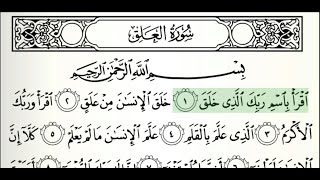 سُورَةُ العَلَقِ
بِسْمِ اللَّهِ الرَّحْمَٰنِ الرَّحِيمِ
ٱقْرَأْ بِٱسْمِ رَبِّكَ ٱلَّذِى خَلَقَ ١ خَلَقَ ٱلْإِنسَٰنَ مِنْ عَلَقٍ ٢ ٱقْرَأْ وَرَبُّكَ
ٱلْأَكْرَمُ ٣ ٱلَّذِى عَلَّمَ بِٱلْقَلَمِ ٤ عَلَّمَ ٱلْإِنسَٰنَ مَا لَمْ يَعْلَمْ ٥ كَلَّآ إِنَّ